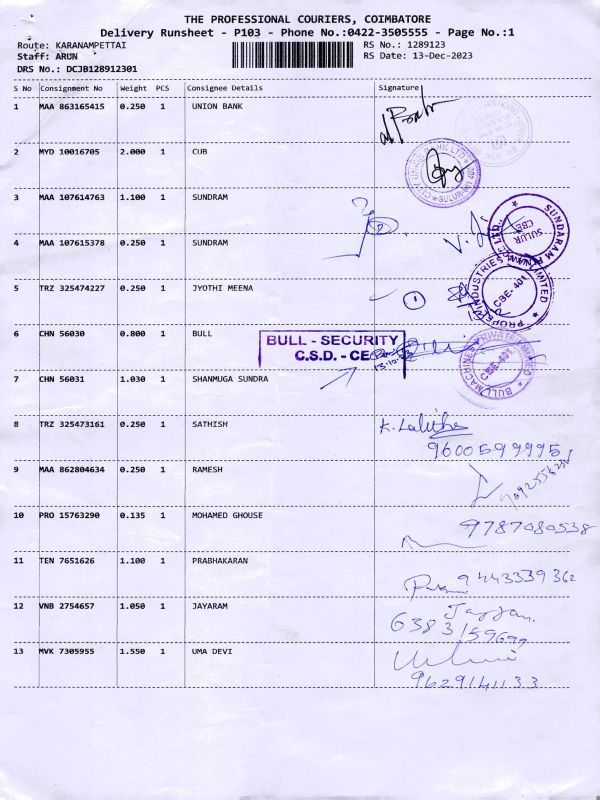 THE PROFESSIONAL COURIERS, COIMBATORE
Delivery Runsheet - P103 - Phone No.:0422-3505555 - Page No.:1
Route: KARANAMPETTAI RS No.: 1289123
Staff: ARUN RS Date: 13-Dec-2023
DRS No.: DCJB128912301
S No Consignment No Weight PCS Consignee Details Signature
1 MAA 863165415 0.250 1 UNION BANK
2 MYD 10016705 2.000 1 CUB
CITY UNION BANK LTD
SULUR
3 MAA 107614763 1.100 1 SUNDRAM
SULUR
CBE
4 MAA 107615378 0.250 1 SUNDRAM
5 TRZ 325474227 0.250 1 JYOTHI MEENA
1
CBE-401
6 CHN 56030 0.800 1 BULL
BULL - SECURITY
C.S.D. - CBE
BULL MACHINES PRIVATE LIMITED
CBE-401
7 CHN 56031 1.030 1 SHANMUGA SUNDRA
8 TRZ 325473161 0.250 1 SATHISH
K. Lalitha
9600599995
9 MAA 862804634 0.250 1 RAMESH
10 PRO 15763290 0.135 1 MOHAMED GHOUSE
9787080538
11 TEN 7651626 1.100 1 PRABHAKARAN
9443339362
12 VNB 2754657 1.050 1 JAYARAM
6383159699
13 MVK 7305955 1.550 1 UMA DEVI
9629141133